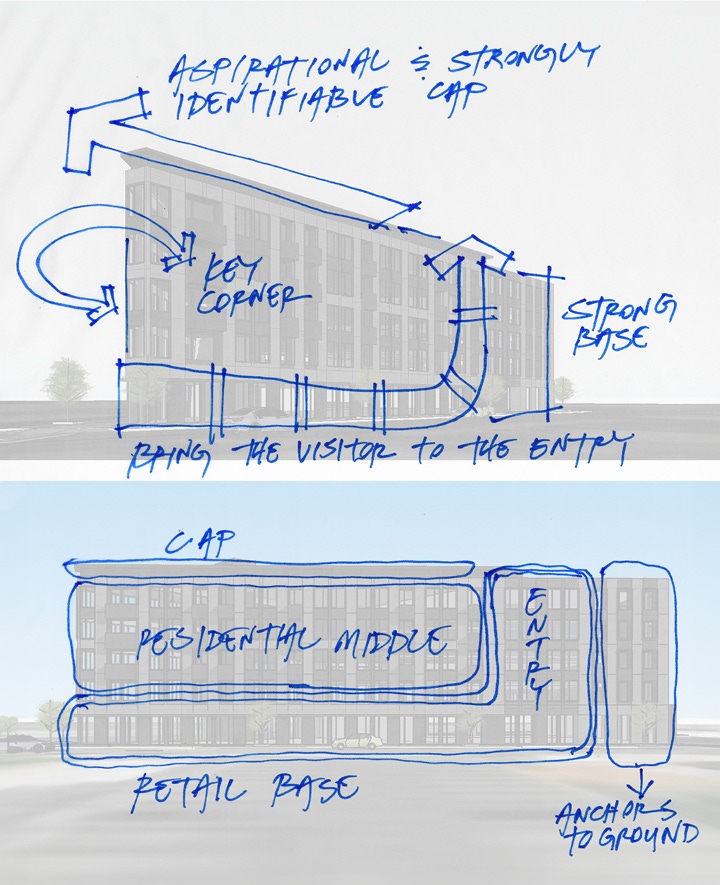 ASPIRATIONAL & STRONGLY
IDENTIFIABLE CAP
KEY
CORNER
STRONG
BASE
BRING THE VISITOR TO THE ENTRY
CAP
RESIDENTIAL MIDDLE
ENTRY
RETAIL BASE
ANCHORS
TO GROUND